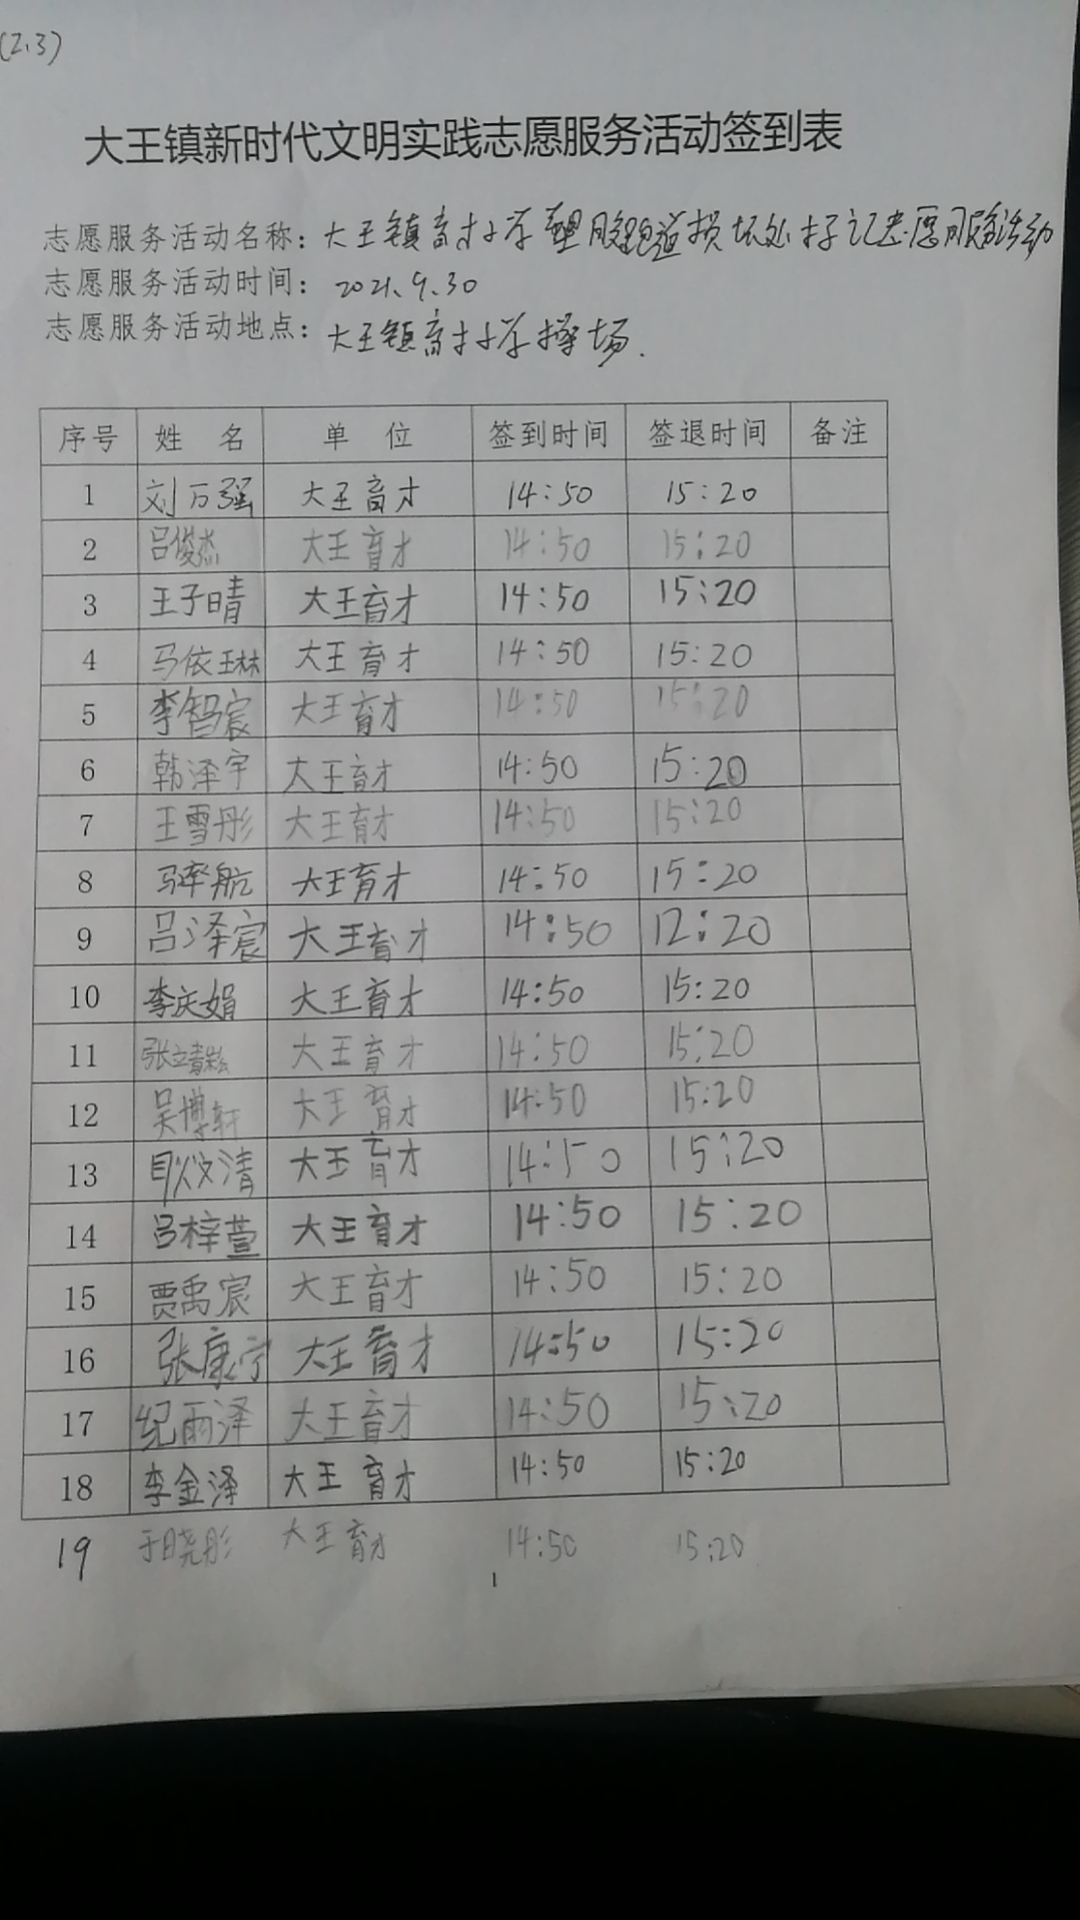 (2.3)
大王镇新时代文明实践志愿服务活动签到表
志愿服务活动名称：大王镇育才小学塑胶跑道损坏处标记志愿服务活动
志愿服务活动时间：2021.9.30
志愿服务活动地点：大王镇育才小学操场.
序号 姓 名 单 位 签到时间 签退时间 备注
1 刘万强 大王育才 14:50 15:20
2 吕俊杰 大王育才 14:50 15:20
3 王子晴 大王育才 14:50 15:20
4 马依琳 大王育才 14:50 15:20
5 李智宸 大王育才 14:50 15:20
6 韩泽宇 大王育才 14:50 15:20
7 王雪彤 大王育才 14:50 15:20
8 马率航 大王育才 14:50 15:20
9 吕泽宸 大王育才 14:50 12:20
10 李庆娟 大王育才 14:50 15:20
11 张 大王育才 14:50 15:20
12 吴博轩 大王育才 14:50 15:20
13 清 大王育才 14:50 15:20
14 吕梓萱 大王育才 14:50 15:20
15 贾禹宸 大王育才 14:50 15:20
16 张康宁 大王育才 14:50 15:20
17 纪雨泽 大王育才 14:50 15:20
18 李金泽 大王育才 14:50 15:20
19 于晓彤 大王育才 14:50 15:20
1